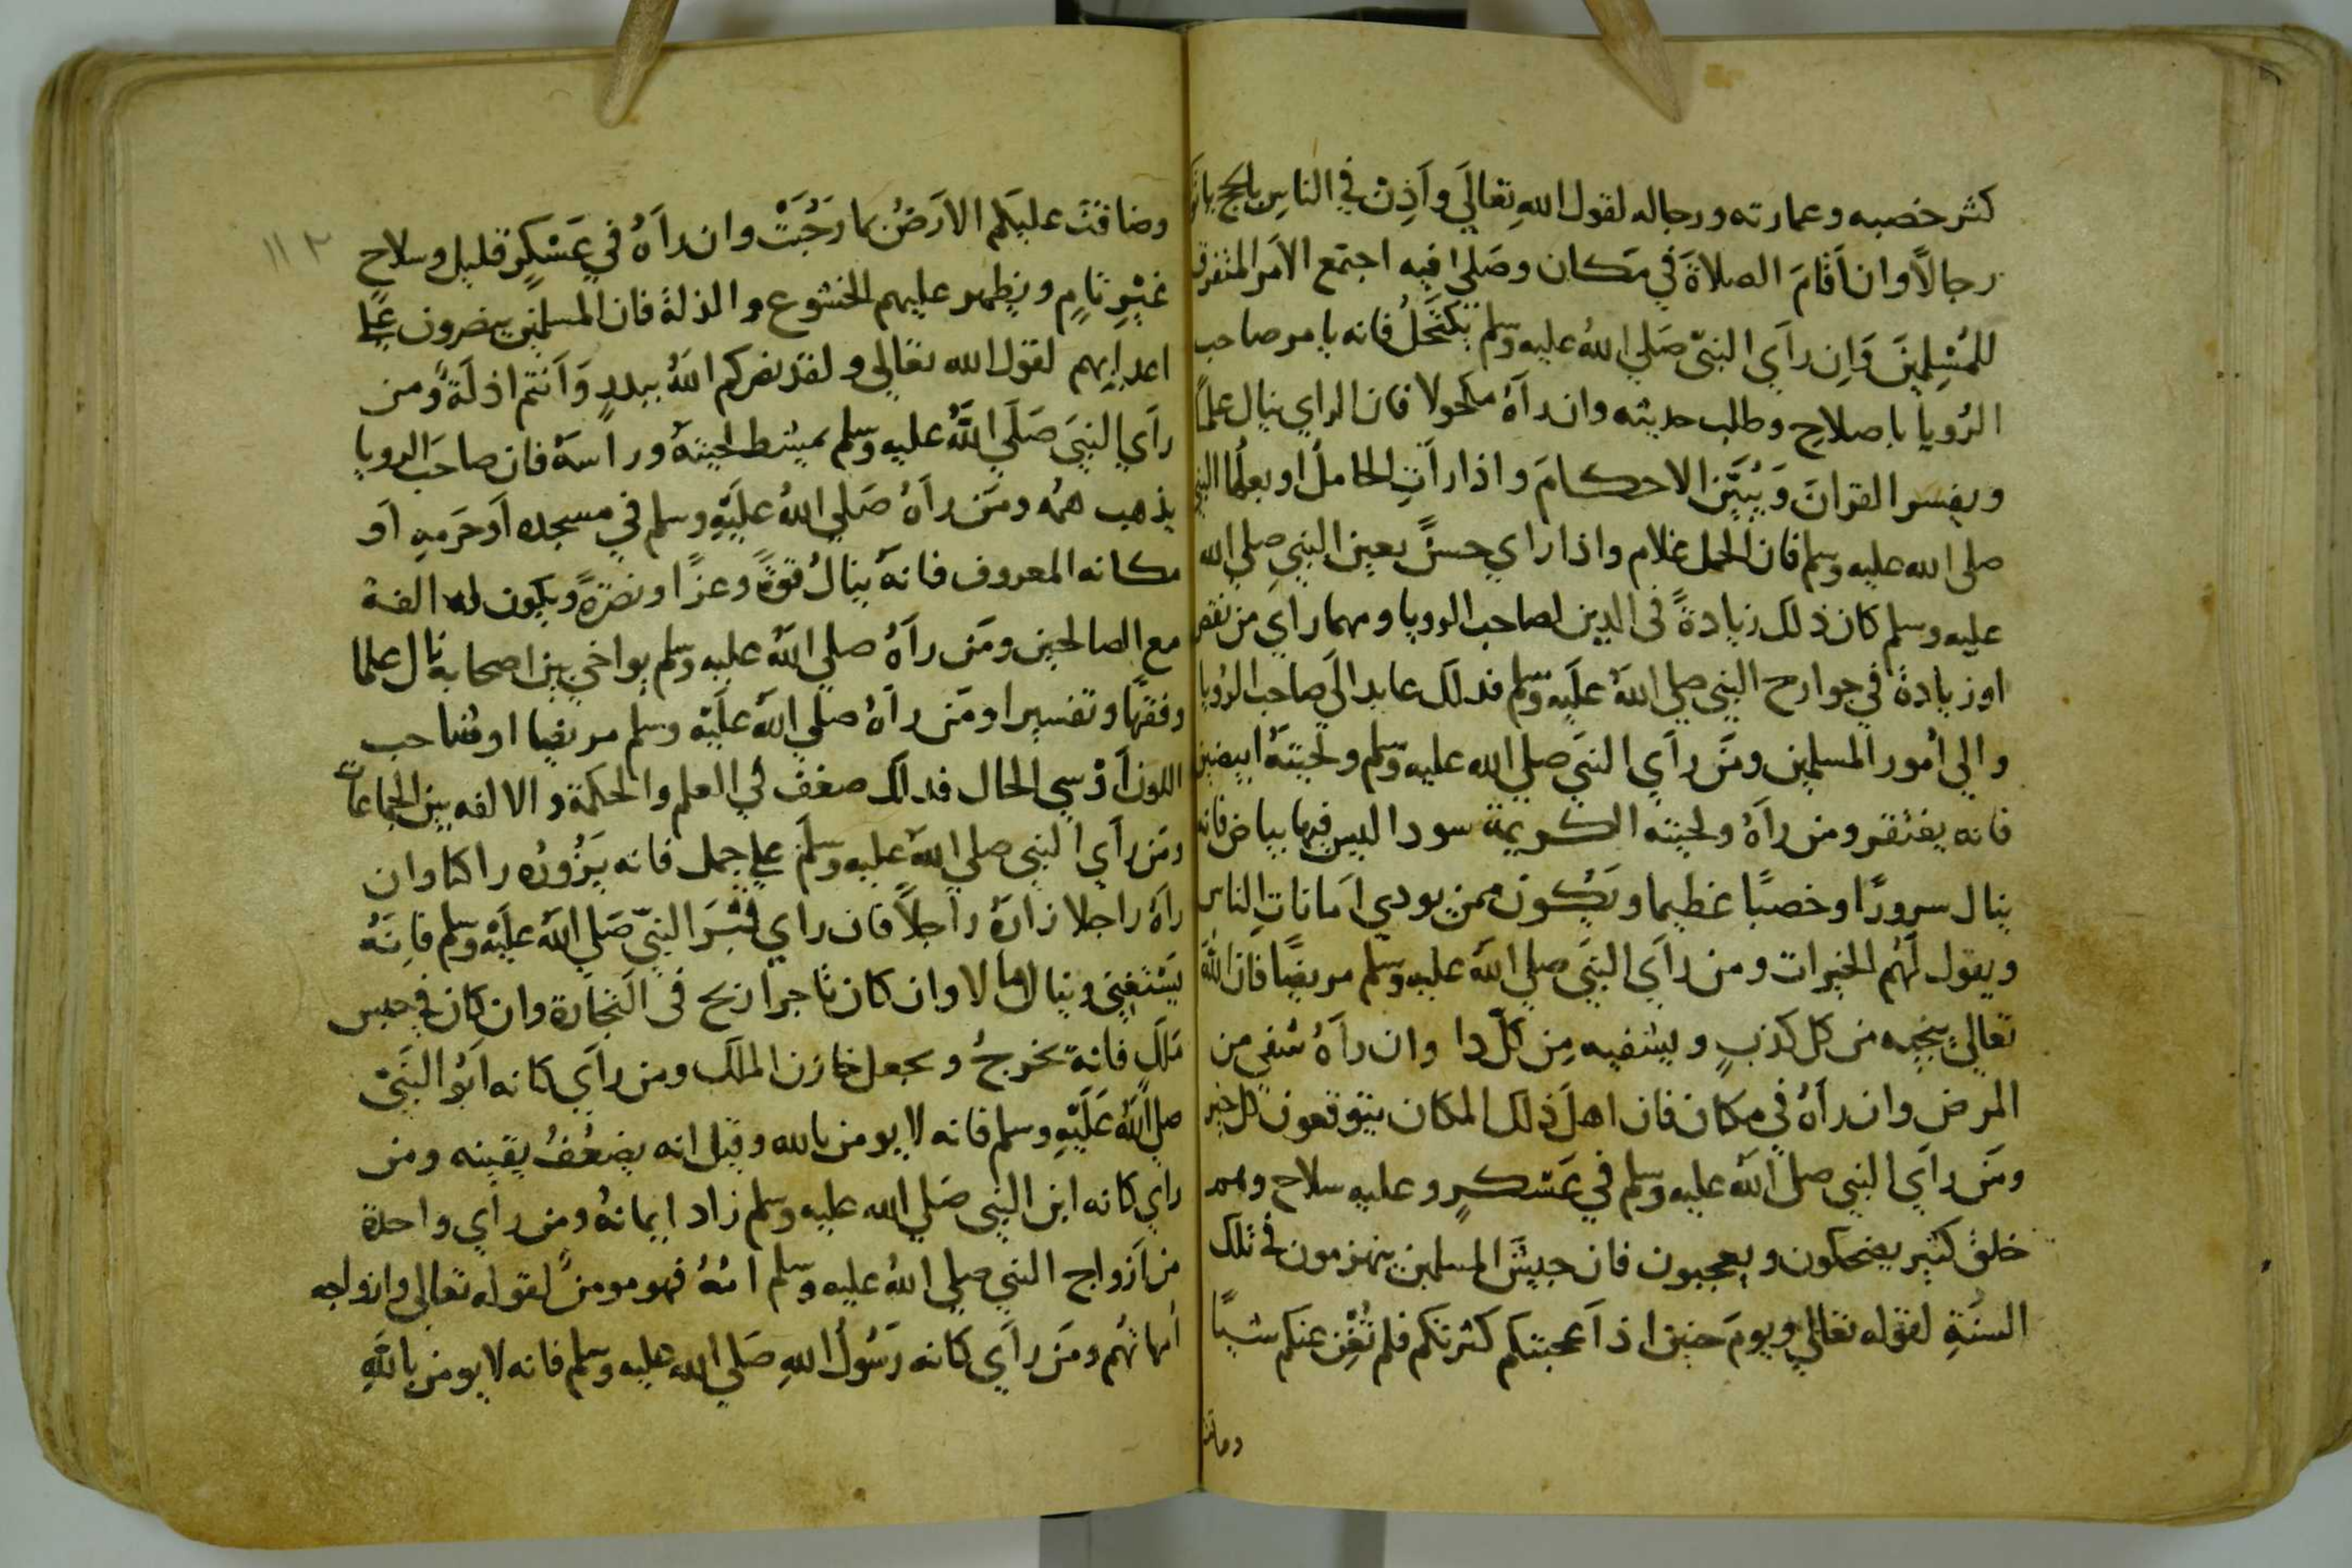 كثر خصبه وعمارته ورجاله لقول اللهِ تعَالَي وَاَذِنْ في الناسِ بالحج ياتو
رجالاً وان اَقامَ الصلاةَ في مَكان وصَلي فيه اجتمع الاَمر المتفرق
للمُسْلِمينَ وَاِن رآَي النبيّ صَلي اللهُ عليه وسلم يَكتَحلُ فانه يامر صاحب
الرُويا باصلاحِ وطلب حديثه وان رآهُ مكحولا فان الراي ينال علماً
ويفسر القرانَ وَيُبَيّن الاحكامَ واذا راَتِ الحامل او بعلُها النبي
صلي الله عليه وسلم فان الحمل غلام واذا راي حسنً بعين النبيِ صلي الله
عليه وسلم كان ذلك زيادةً في الدين لصاحب الرويا ومهما راي من نقص
او زيادة في جوارح النبي صلي اللهُ علَيه وسَلم فدلك عايد الَي صاحب الرُويا
والي اُمور المسلمين ومَن راَي النبيَ صلي الله عليه وسَلم ولحيتهُ ابيضين
فانه يفتقر ومن رآهُ ولحيته الكريمة سودا ليس فيها بياض فانه
ينال سرورًا وخصبًا عظيما ويَكُون ممن يودي اَمَانَاتِ الناس
ويقول لَهُم الخيرات ومن راَي النبيَ صلي اللهُ عليه وسلم مريضًا فان اللهَ
تعالي ينجيه من كل كذبٍ ويشفيه مِن كلّ دا وان رآَهُ شفي من
المرض وان رآهُ في مكان فان اهلَ ذلك المكان يتوقعون كل خير
ومَن راَي النبي صلي اللهُ عليه وسلم في عَسْكرٍ وعليه سلاح وهم
خلقٌ كثير يضحكون ويعجبون فان جيشَ المسلمين ينهزمون في تلك
السنَةِ لقوله تعَالي ويومَ حنين اذ اَعجبتكم كثرتكم فلم تُغْن عنكم شيًا
وضاقت
وضاقتَ عليكَم الاَرَضُ بما رَحُبَتْ وان رآَهُ في عَسْكرٍ قليل وسلاح
غَيْرِ تامٍ ويظهر عليهم الخشوع والذلة فان المسلمين ينصرون علي
اعدايهم لقول الله تعالي ولقد نصركم اللهُ ببدرٍ وَاَنتم اذلَةً ومن
راَي النبيَ صَلَي اللهُ عليه وسلم يمشط لحيتهُ وراسهُ فان صاحَب الرويا
يذهب همُه ومَن رآَهُ صَلي اللهُ علَيْهِ وسلم في مسجده اَو حَرَمهِ اَو
مكانه المعروف فانهُ ينالُ قوةً وعزًا ونصرَةً ويكون له الفة
مع الصالحين ومَن رآَهُ صلي اللهُ عليه وسلم يواخي بين اصحابه نال علما
وفقهًا وتفسيرا ومَن رآهُ صلي اللهُ علَيْه وسلم مريضا او شاحب
اللون اَو سي الحال فدلك ضعف في العلم والحكمة والالفه بين الجماعات
ومَن راَي النبي صلي اللهُ عليه وسلم علي جمل فانه يَزُورُه راكبا وان
رآهُ راجلا زارهُ راَجلاً فان راي قَبْرَ النبيّ صَلي اللهُ علَيْه وسلم فاِنهُ
يَسْتغني وينال مالا وان كان تاجرا ربح في التجارة وان كان في حبس
مَلكٍ فانهُ يخرجُ ويجعل خازن الملك ومن راَي كانه اَبُو النبَيْ
صلي اللهُ عَلَيْهِ وسلم فانه لا يومن بالله وقيل انه يضعُفُ يقينه ومن
راي كانه ابن النبي صَلي الله عليه وسلم زاد ايمانهُ ومن راَي واحدة
من اَزواج النبي صلي اللهُ عليه وسلم امهُ فهو مومنٌ لقوله تعَالي وازواجه
اُمهاتُهم ومَن راَي كَانه رَسُولُ اللهِ صَلي الله عليه وسلم فانه لا يومن باللهِ
١١٢